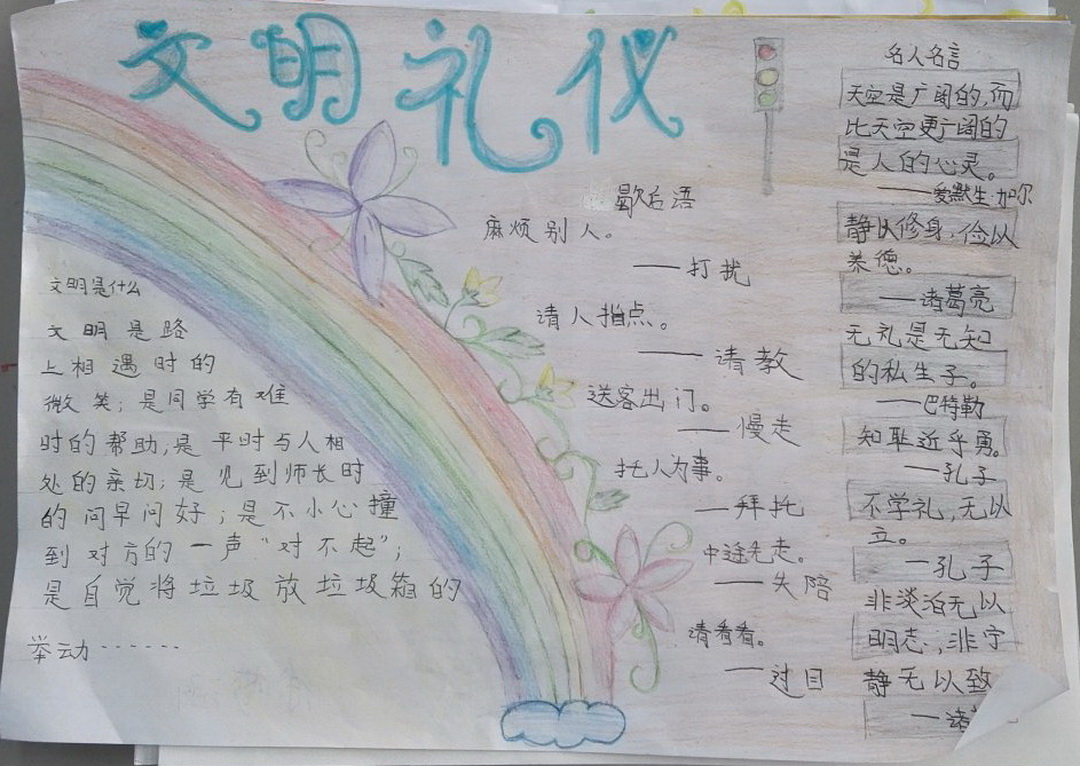 文明礼仪
文明是什么
文明是路
上相遇时的
微笑；是同学有难
时的帮助,是平时与人相
处的亲切；是见到师长时
的问早问好；是不小心撞
到对方的一声“对不起”；
是自觉将垃圾放垃圾箱的
举动······
歇后语
麻烦别人。
——打扰
请人指点。
——请教
送客出门。
——慢走
托人为事。
——拜托
中途先走。
——失陪
请看看。
——过目
名人名言
天空是广阔的,而
比天空更广阔的
是人的心灵。
——爱默生·加尔
静以修身,俭以
养德。
——诸葛亮
无礼是无知
的私生子。
——巴特勒
知耻近乎勇。
——孔子
不学礼,无以
立。
——孔子
非淡泊无以
明志；非宁
静无以致
——诸